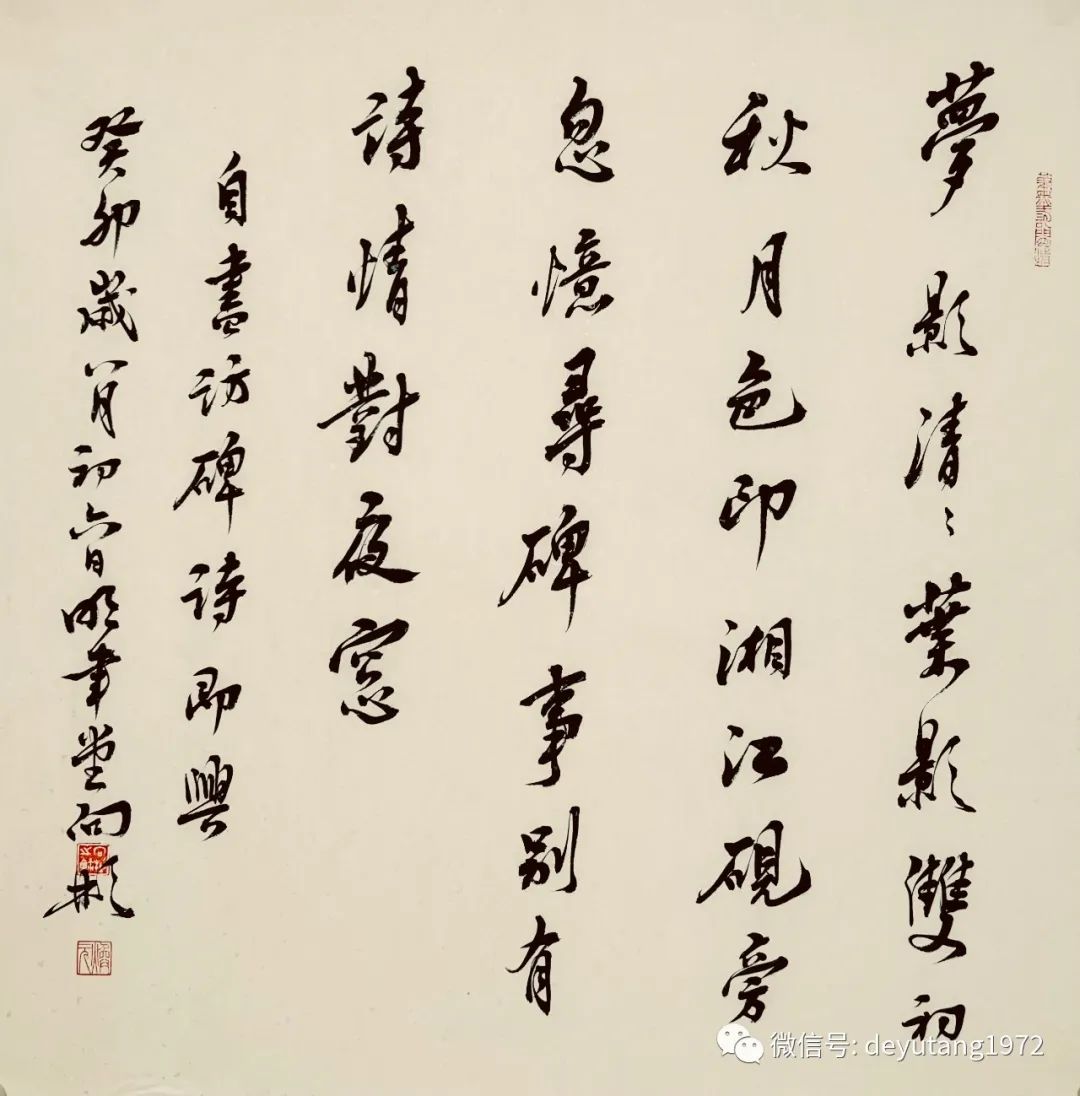 夢影清〻葉影雙初
秋月色印湘江硯旁
息憶尋碑事別有
詩情對夜窓
自書訪碑詩即興
癸卯歳八月初六日明聿堂向彬
微信号: deyutang1972